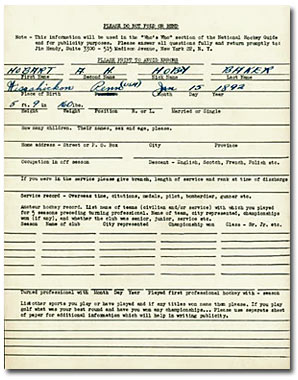 PLEASE DO NOT FOLD OR BEND
Note - This information will be used in the "Who's Who" section of the National Hockey Guide
and for publicity purposes. Please answer all questions fully and return promptly to:
Jim Hendy, Suite 5300 - 523 Madison Avenue, New York 22, N. Y.
PLEASE PRINT TO AVOID ERRORS
HOBART A HOBEY BAKER
First Name Second Name Nick Name Last Name
Wissahickon Penn (USA) Jan 15 1892
Place of Birth Province Month Day Year
5 ft. 9 in 160 lbs.
Height Weight Position R. or L. Married or Single
How many children. Their names, sex and age, please.
Home address - Street or P. O. Box City Province
Occupation in off season Descent - English, Scotch, French, Polish etc.
If you were in the service please give branch, length of service and rank at time of discharge
Service record - Overseas time, citations, medals, pilot, bombardier, gunner etc.
Amateur hockey record. List name of teams (civilian and/or service) with which you played
for 5 seasons preceding turning professional. Name of team, city represented, championships
won (if any), and whether the club was senior, junior, service etc.
Season Name of club City represented Championship won Class - Sr. Jr. etc.
Turned professional with Month Day Year Played first professional hockey with - season
List other sports you play or have played and if any titles won name them please. If you play
golf what was your best round and have you won any championships... Please use separate
sheet of paper for additional information which will help in writing publicity.